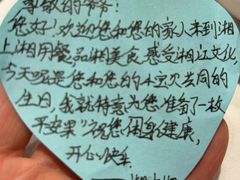 尊敬的爷爷:
您好!欢迎您和您的家人来到湘
上湘用餐品湘美食感受湘江文化,
今天呢是您和您的小宝贝共同的
生日,我就特意为您准备了一枚
平安果!祝您身体健康,
开心快乐